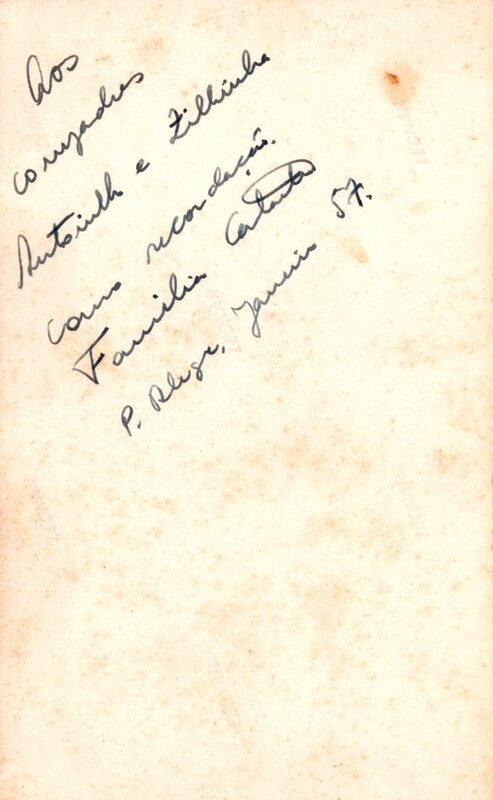 Aos
compadres
Antoninho e Zilhinha
como recordação.
Familia
P. Alegre, Janeiro 57.